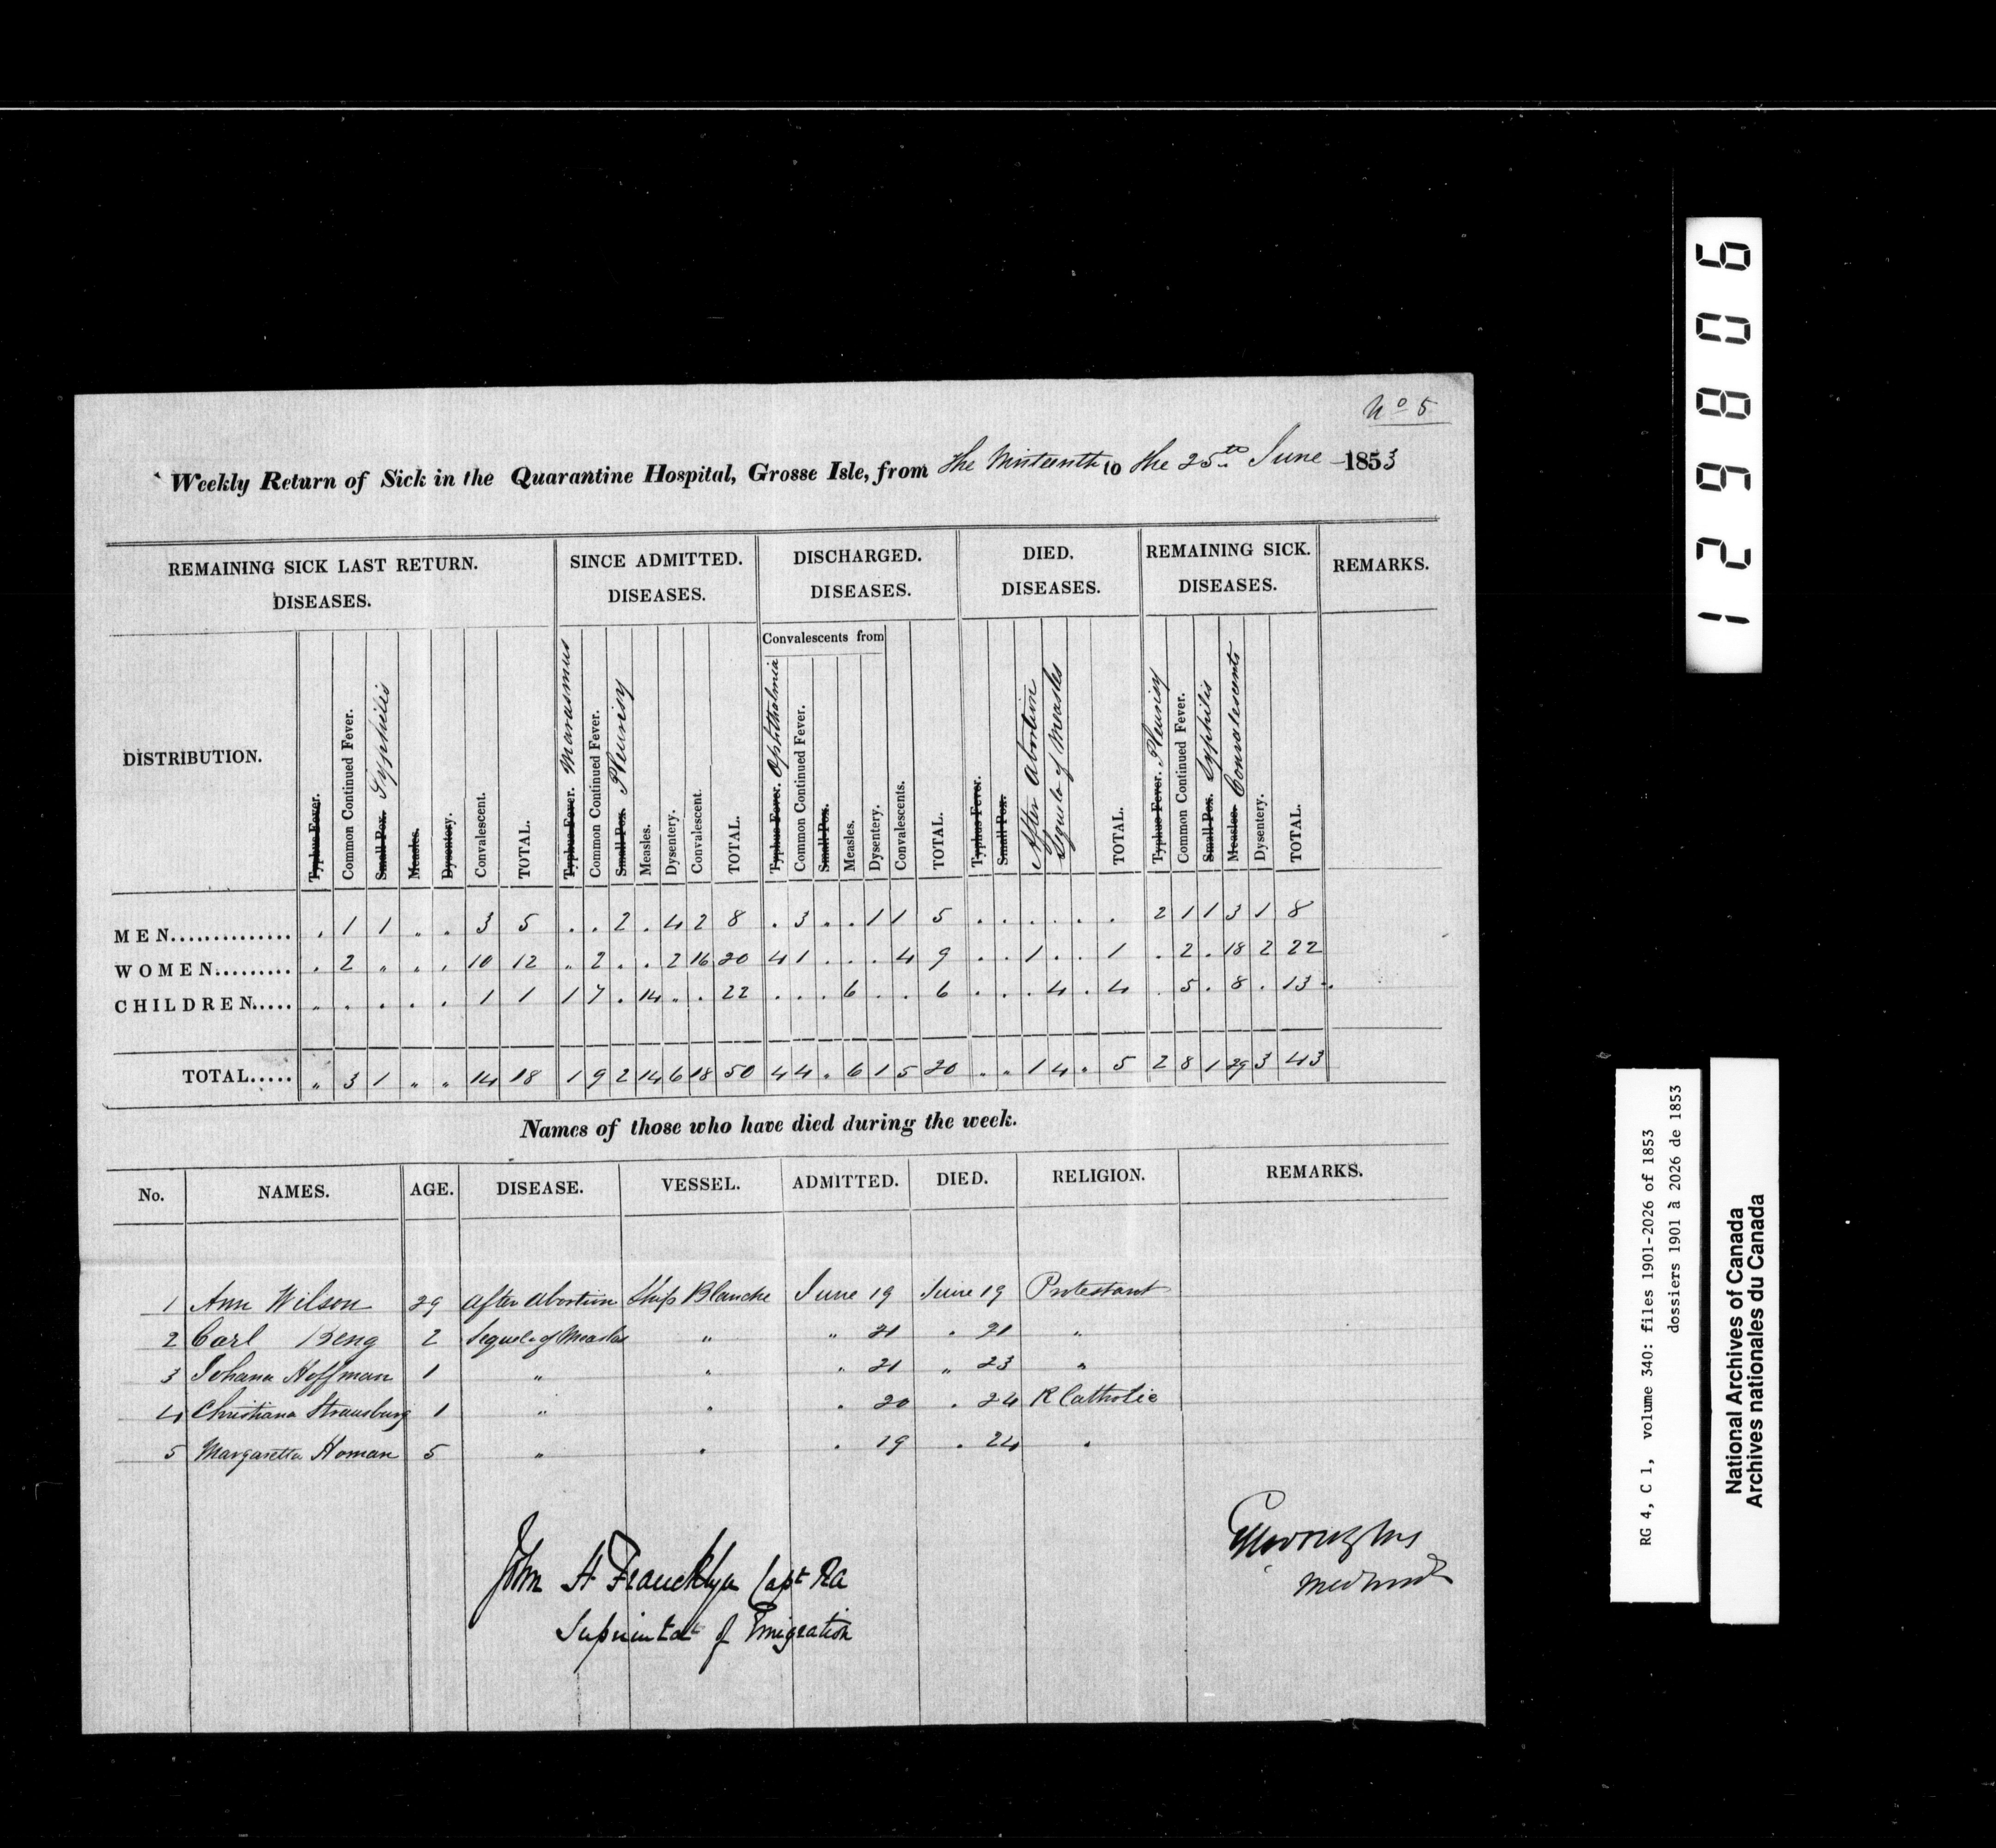 No 5
Weekly Return of Sick in the Quarantine Hospital, Grosse Isle, from the Ninteenth to the 25th June 1853
REMAINING SICK LAST RETURN. DISEASES. SINCE ADMITTED. DISEASES. DISCHARGED. DISEASES. DIED. DISEASES. REMAINING SICK. DISEASES. REMARKS.
Convalescents from
DISTRIBUTION. Typhus Fever. Common Continued Fever. Small Pox. Syphilis Measles. Dysentery. Convalescent. TOTAL. Typhus Fever. Marasmus Common Continued Fever. Small Pox. Pleurisy Measles. Dysentery. Convalescent. TOTAL. Typhus Fever. Ophthalmia Common Continued Fever. Small Pox. Measles. Dysentery. Convalescents. TOTAL. Typhus Fever. Small Pox. After Abortion Sequela of Measles TOTAL. Typhus Fever. Pleurisy Common Continued Fever. Small Pox. Syphilis Measles. Convalescents Dysentery. TOTAL.
MEN.............. . 1 1 " . 3 5 . . 2 . 4 2 8 . 3 . . 1 1 5 . . . . . . 2 1 1 3 1 8
WOMEN......... . 2 " . . 10 12 " 2 . . 2 16 20 4 1 . . . 4 9 . . 1 . . 1 . 2 . 18 2 22
CHILDREN..... " . . . . 1 1 1 7 . 14 " . 22 . . . 6 . . 6 . . . 4 . 4 . 5 . 8 . 13
TOTAL..... " 3 1 " " 14 18 1 9 2 14 6 18 50 4 4 . 6 1 5 20 " " 1 4 . 5 2 8 1 29 3 43
Names of those who have died during the week.
No. NAMES. AGE. DISEASE. VESSEL. ADMITTED. DIED. RELIGION. REMARKS.
1 Ann Wilson 29 After Abortion Ship Blanche June 19 June 19 Protestant
2 Carl Beng 2 Sequela of Measles " " 21 " 21 "
3 Johana Hoffman 1 " " " 21 " 23 "
4 Christiana Strausburg 1 " " " 20 " 24 R Catholic
5 Margaretta Homan 5 " " " 19 " 24 "
John H Francklyn Capt RA
Superintdt of Emigration
129806
RG 4, C 1, volume 340: files 1901-2026 of 1853
dossiers 1901 à 2026 de 1853
National Archives of Canada
Archives nationales du Canada